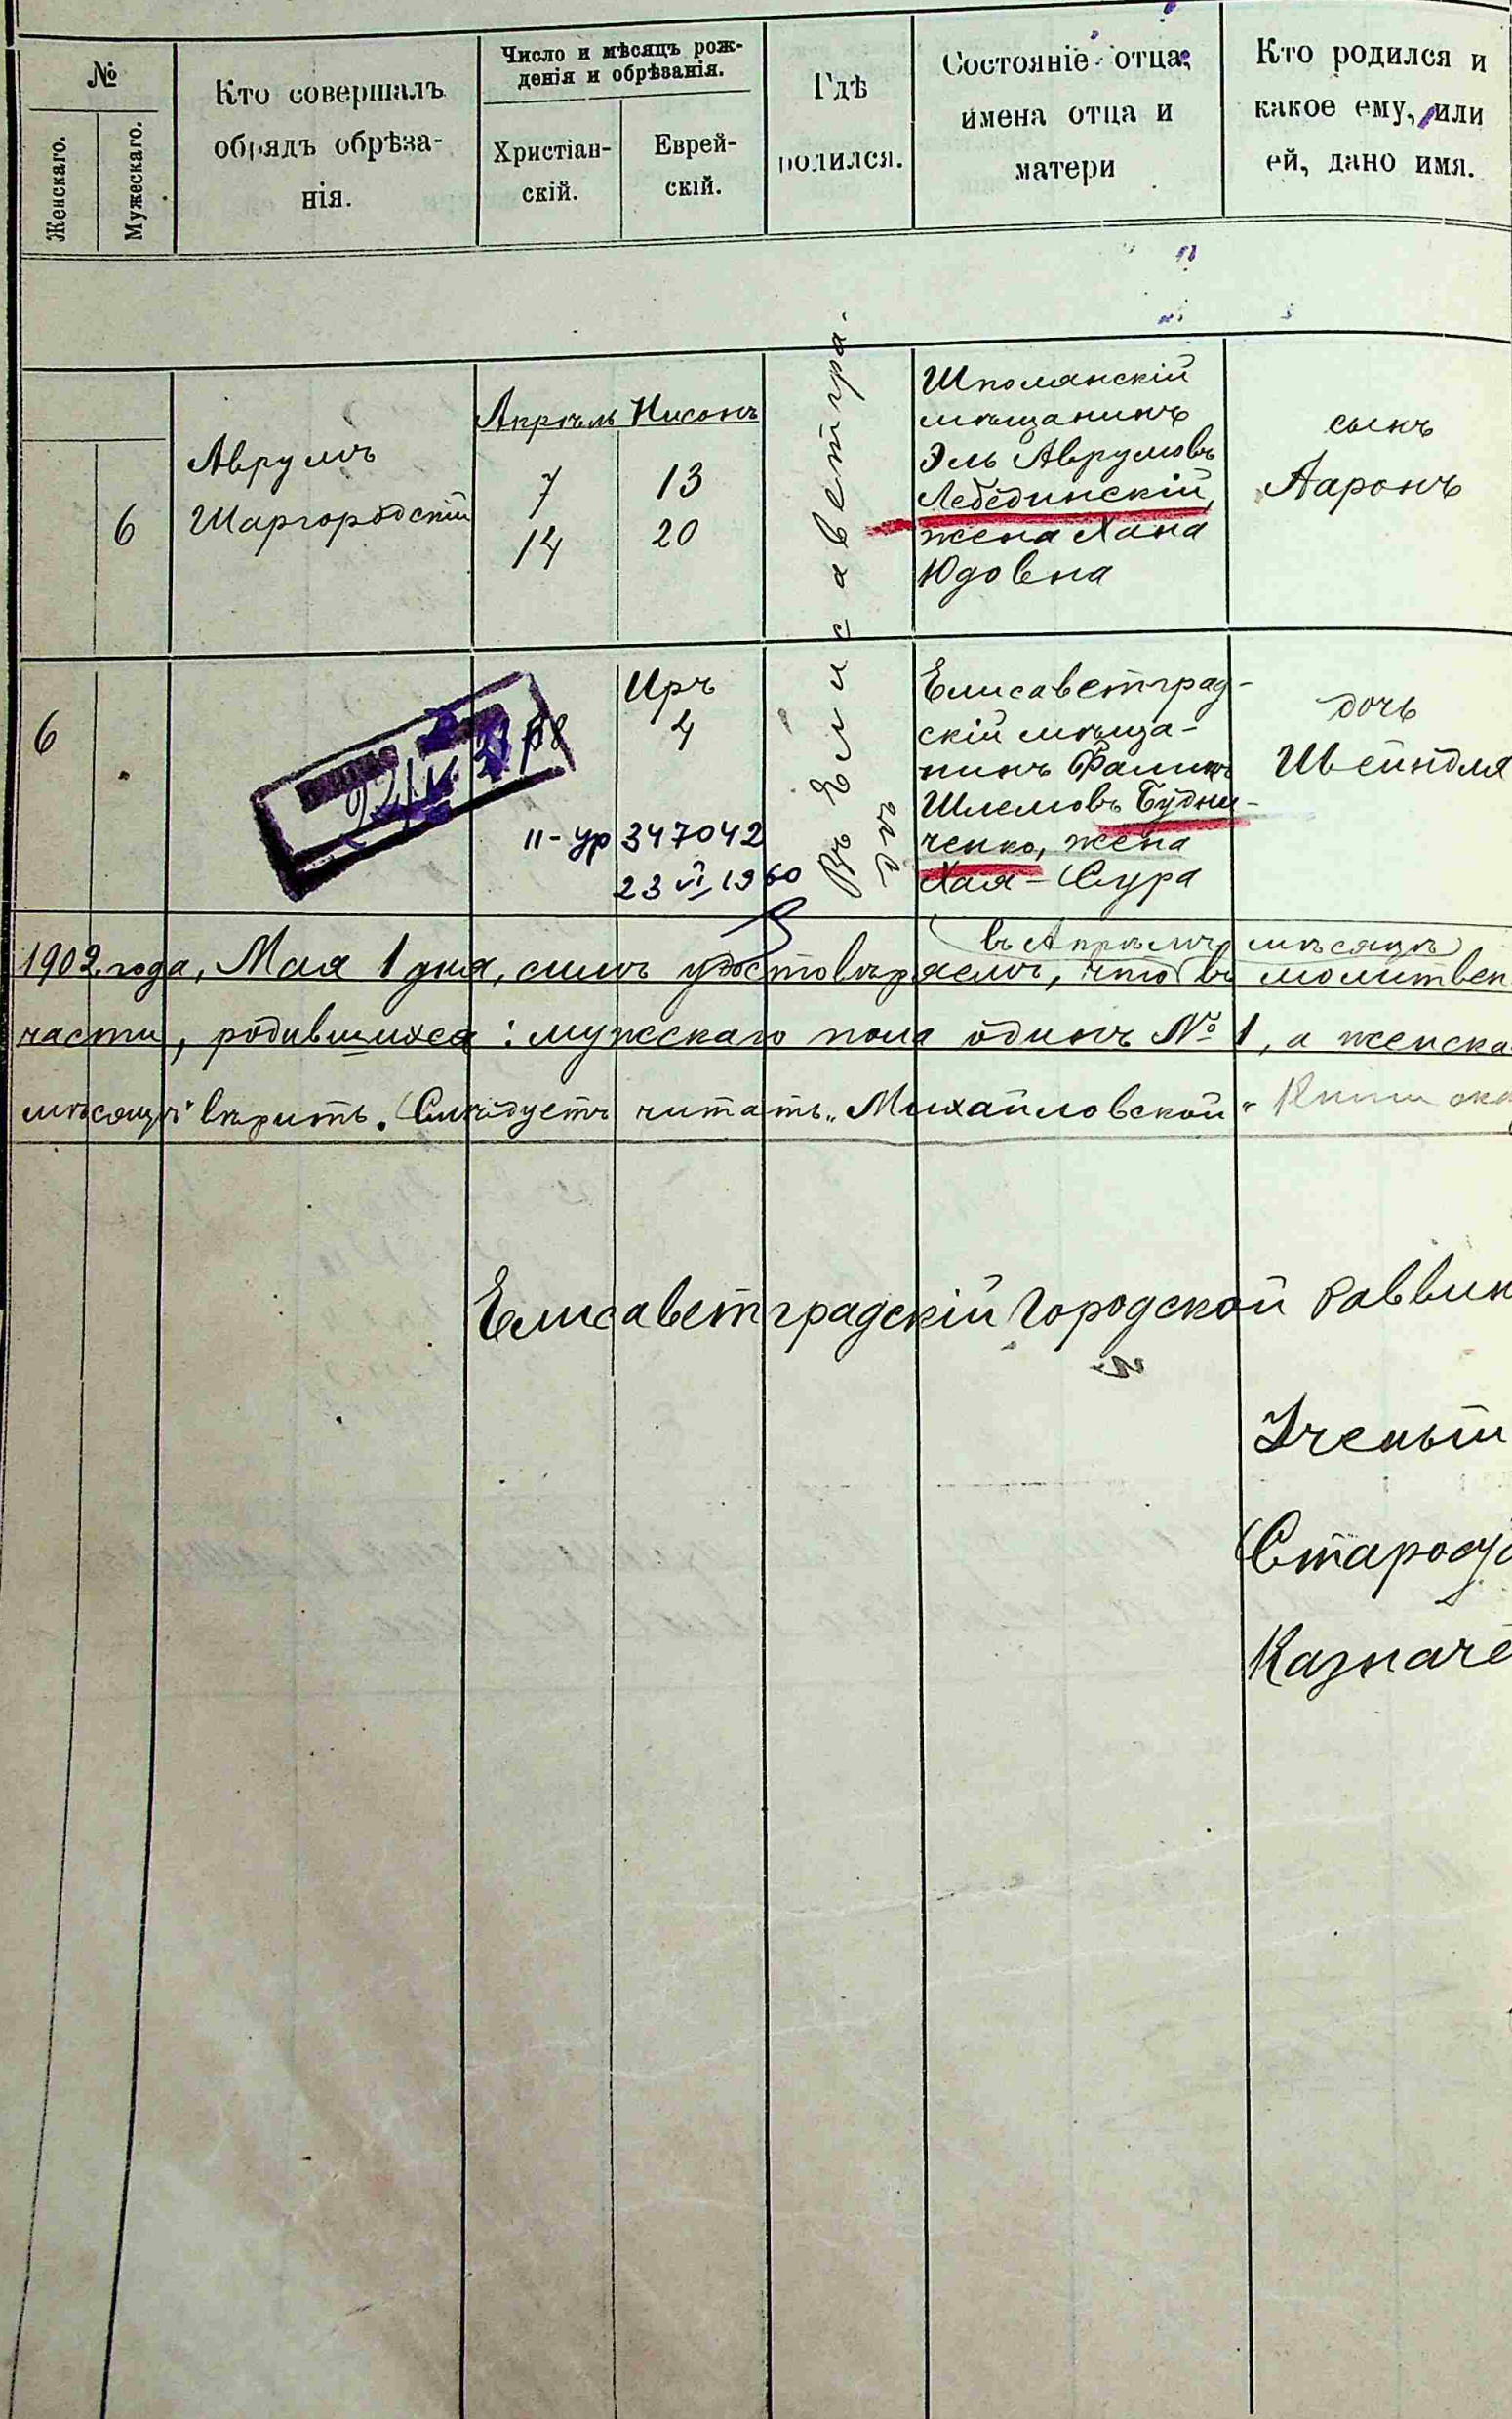 №
Женскаго.
Мужескаго.
Кто совершалъ
обрядъ обрѣза-
нія.
Число и мѣсяцъ рож-
денія и обрѣзанія.
Христіан-
скій.
Еврей-
скій.
Гдѣ
родился.
Состояніе отца,
имена отца и
матери
Кто родился и
какое ему, или
ей, дано имя.
6
Аврумъ
Шаргородскій
Апрѣль Нисонъ
7 13
14 20
Въ Елисаветгра-
дѣ
Шполянскій
мѣщанинъ
Эль Аврумовъ
Лебединскій,
жена Хана
Юдовна
сынъ
Ааронъ
6
Иръ
4
II-УР 347042
23 VI 1960
Елисаветград-
скій мѣща-
нинъ Фаликъ
Шлемовъ Будни-
ченко, жена
Хая-Сура
дочь
Шейндля
въ Апрѣлѣ мѣсяцѣ
1902 года, Мая 1 дня, симъ удостовѣряемъ, что въ молитвен
части, родившихся: мужскаго пола одинъ № 1, а женска
мѣсяцъ" вѣрить. Слѣдуетъ читать „Михайловской"
Елисаветградскій Городской Раввин
Ученый
Старос
Казначе